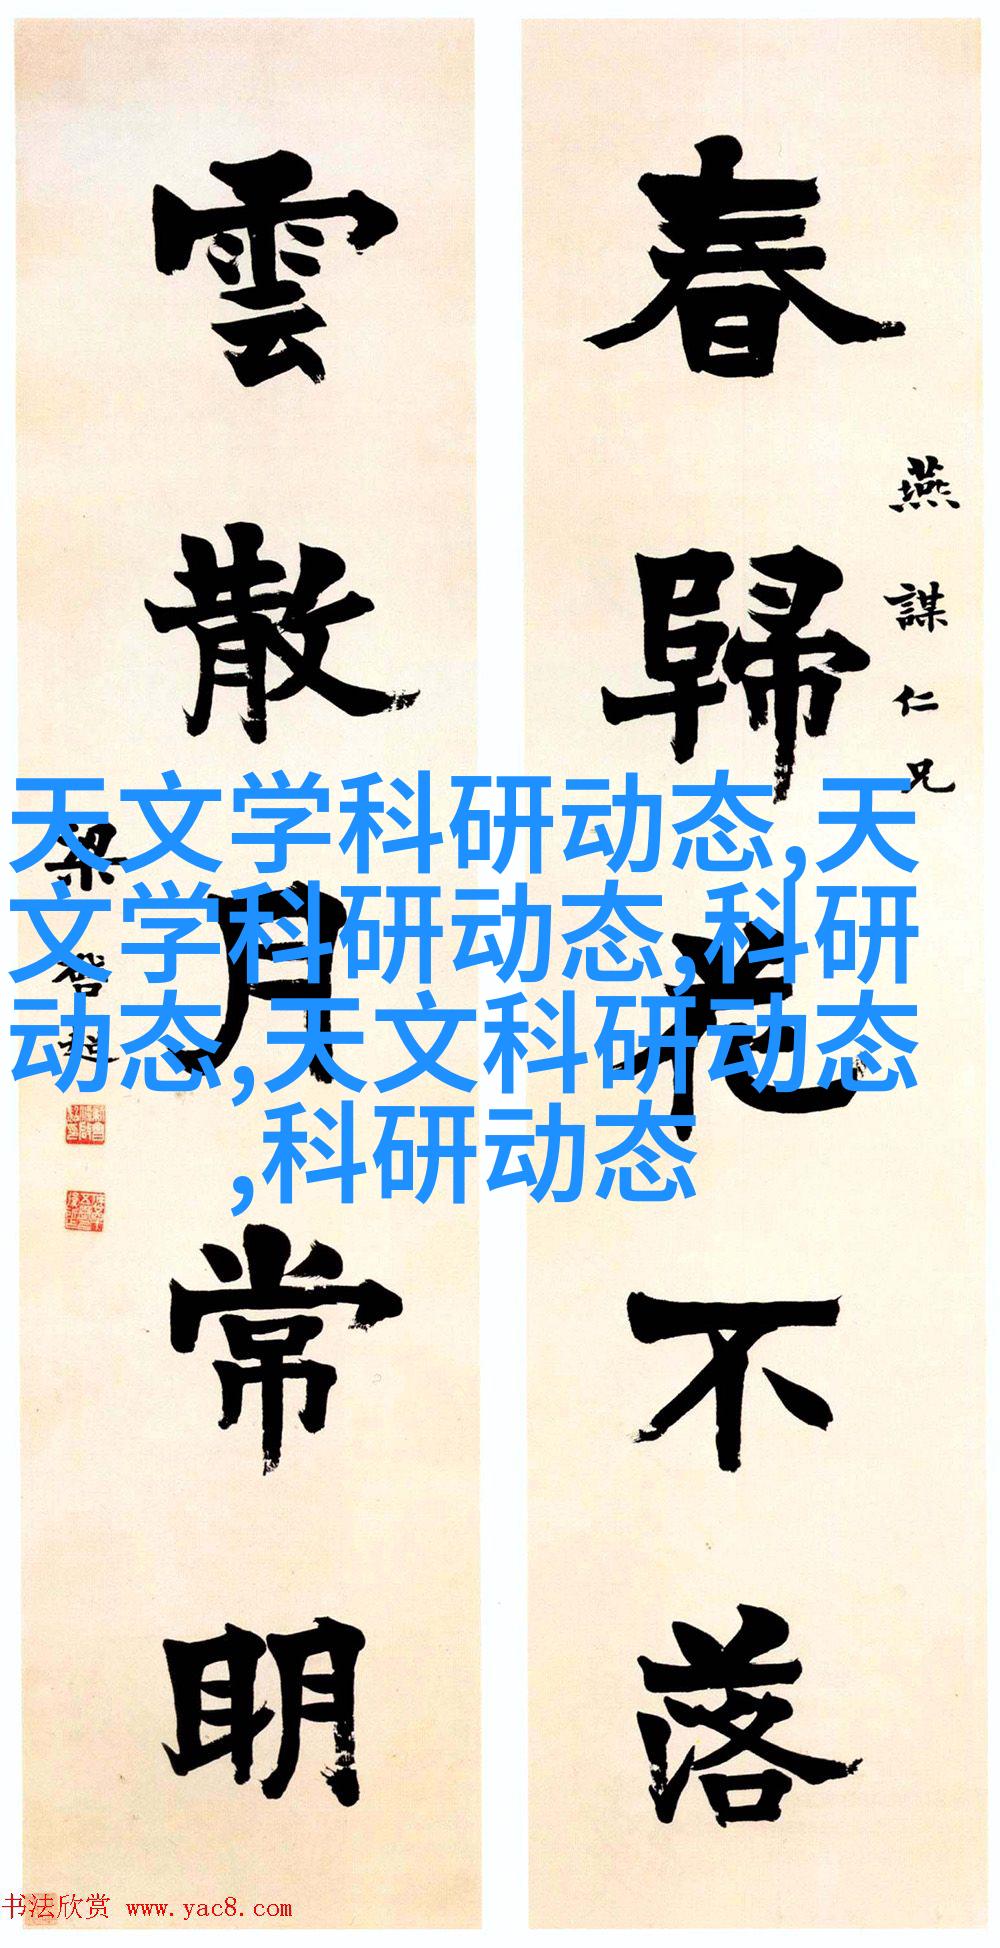 春歸花不落
燕謀仁兄
雲散月常明
梁啓超
天文学科研动态,天
文学科研动态,科研
动态,天文科研动态
,科研动态
书法欣赏 www.yac8.com